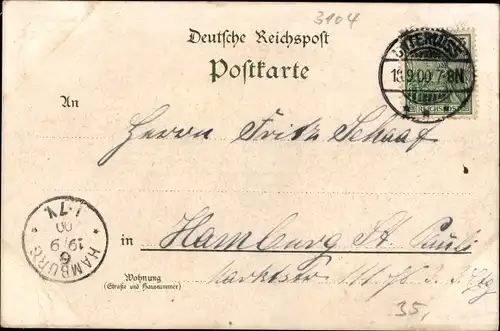 3104
Deutsche Reichspost
Postkarte
18.9.00 7-8N
REICHSPOST
An
Herrn Fritz Schaaf
HAMBURG
6
19/9
00
1-7V.
in Hamburg St. Pauli
Wohnung
(Straße und Hausnummer)
Marktstr
35,